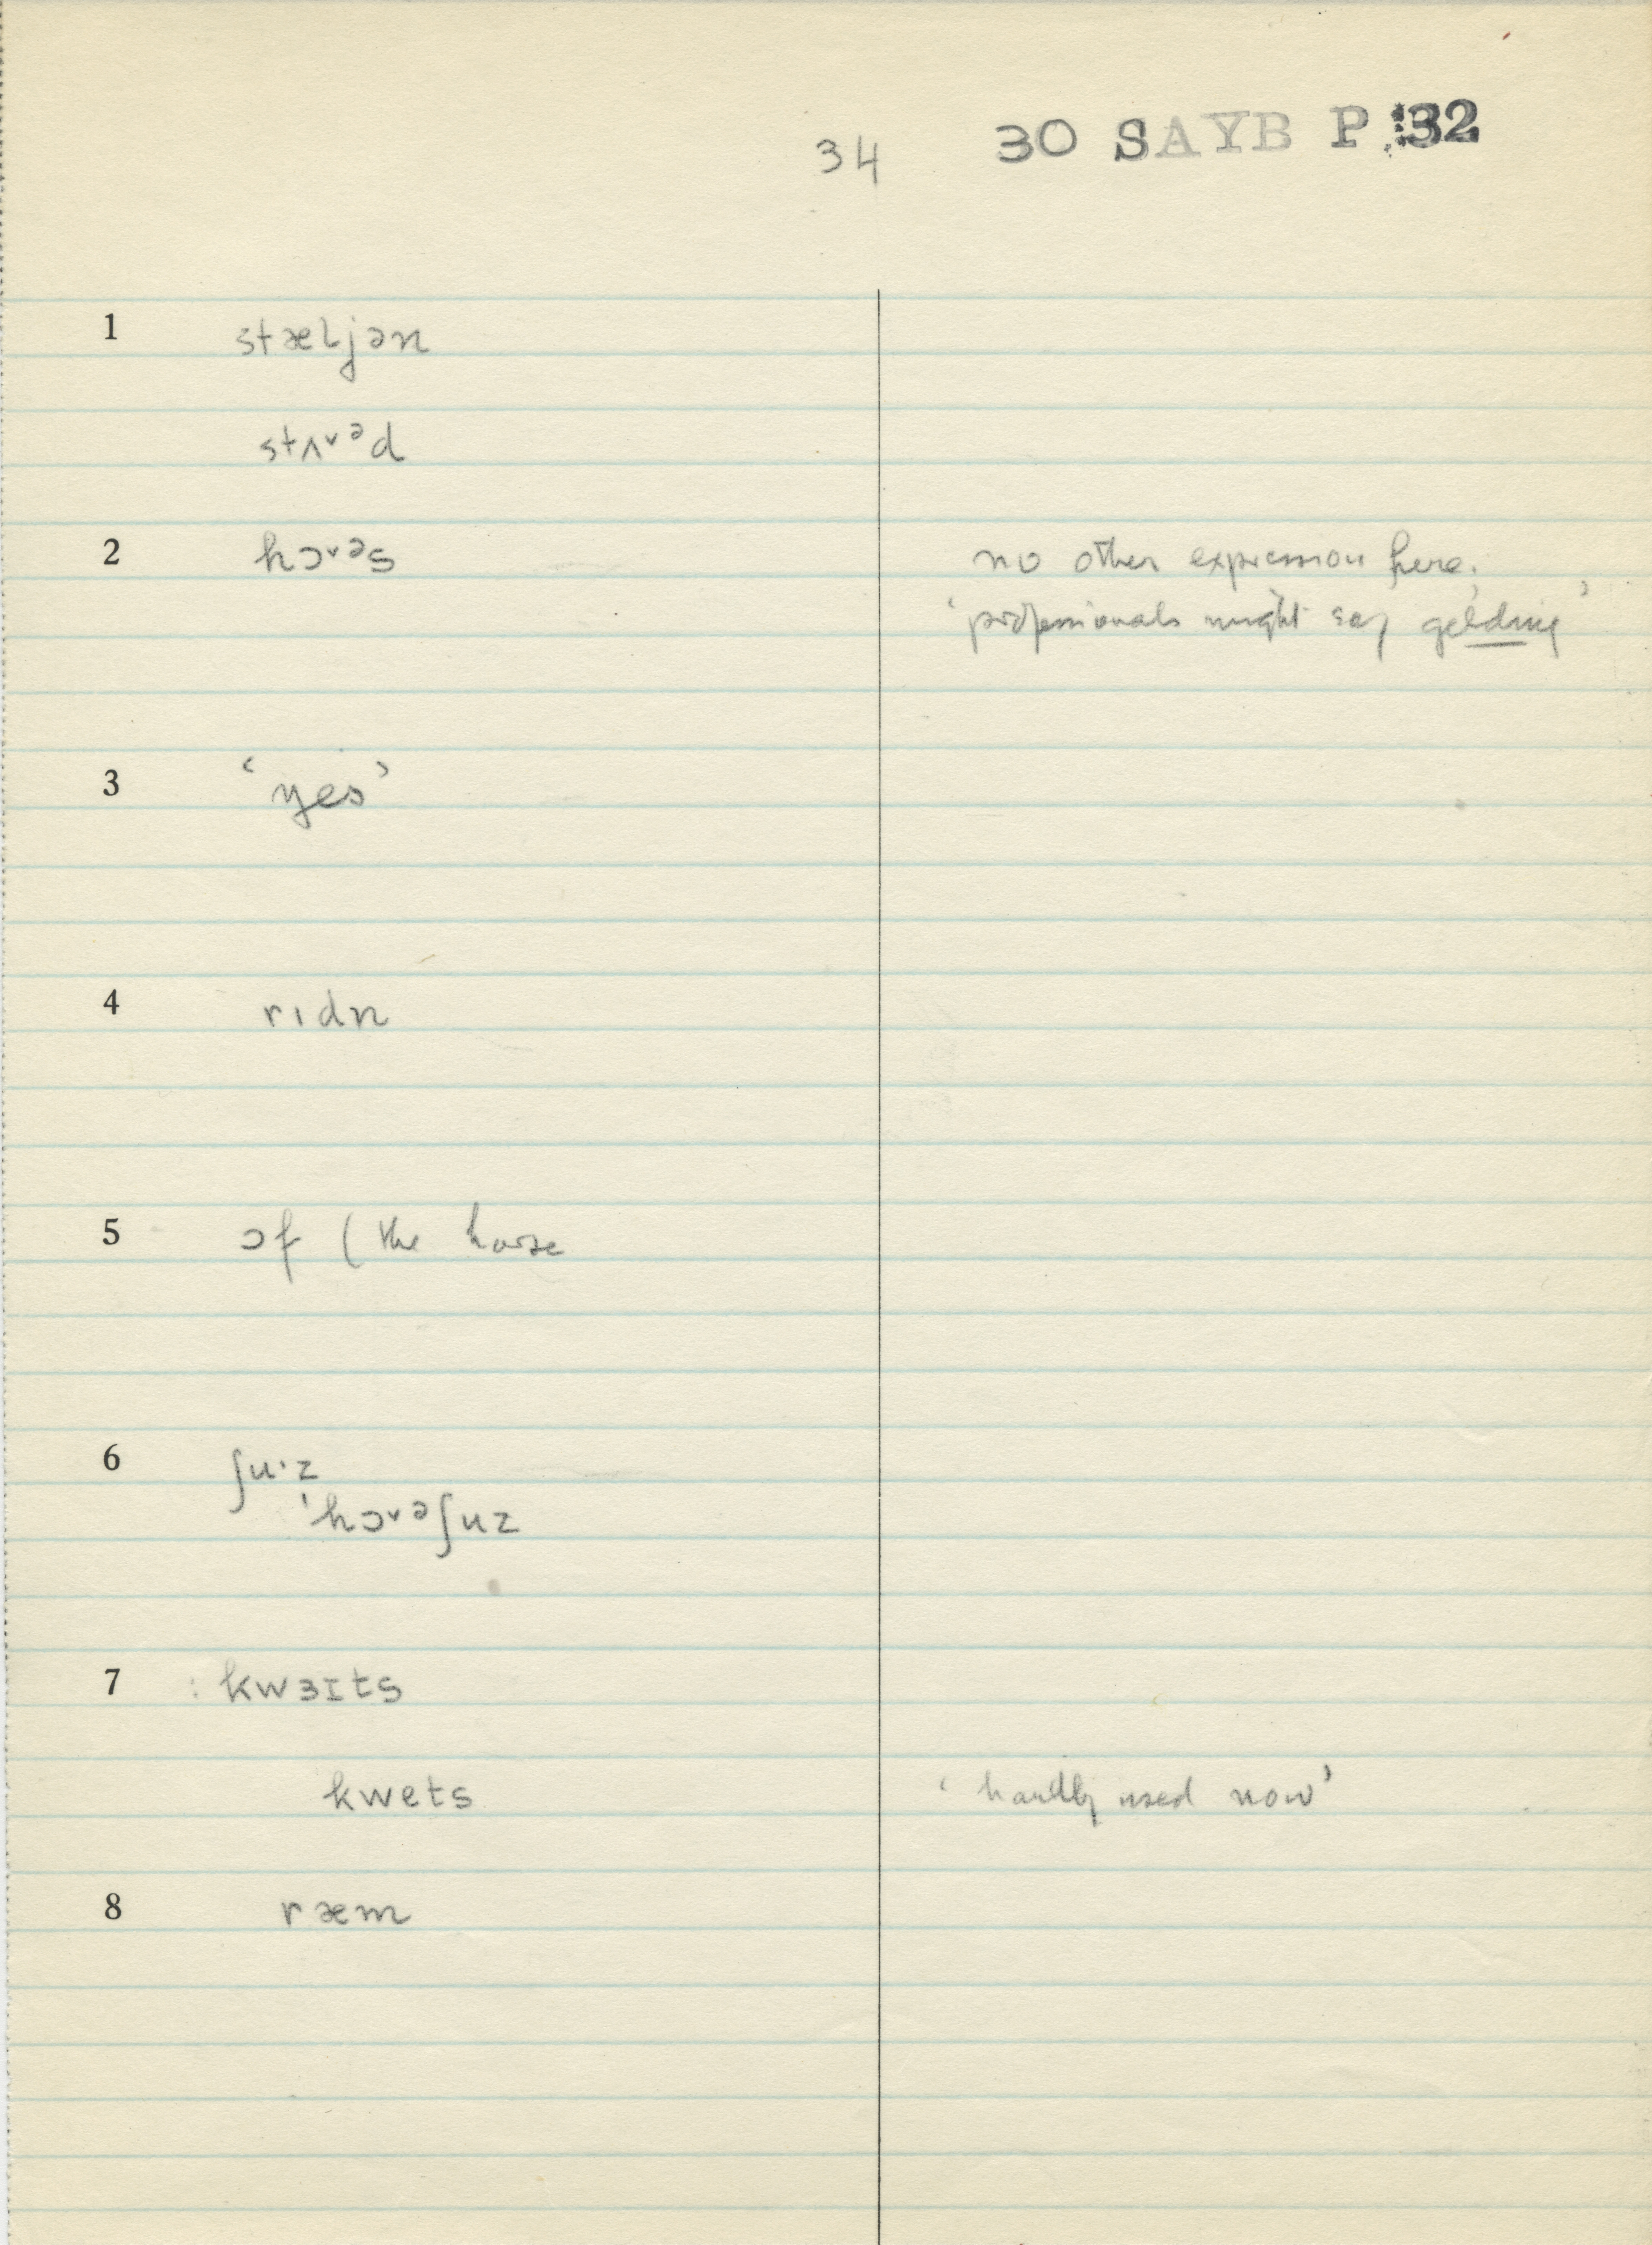 34 30 SAYB P 132
1 stæljən
stʌ˅ᵊd
2 hɔ˅ᵊs no other expression here.
‘professionals might say gelding’
3 ‘yes’
4 rɪdn
5 ɔf (the horse
6 ʃu·z
'hɔ˅ᵊʃuz
7 : kwɜɪts
kwets ‘hardly used now’
8 ræm